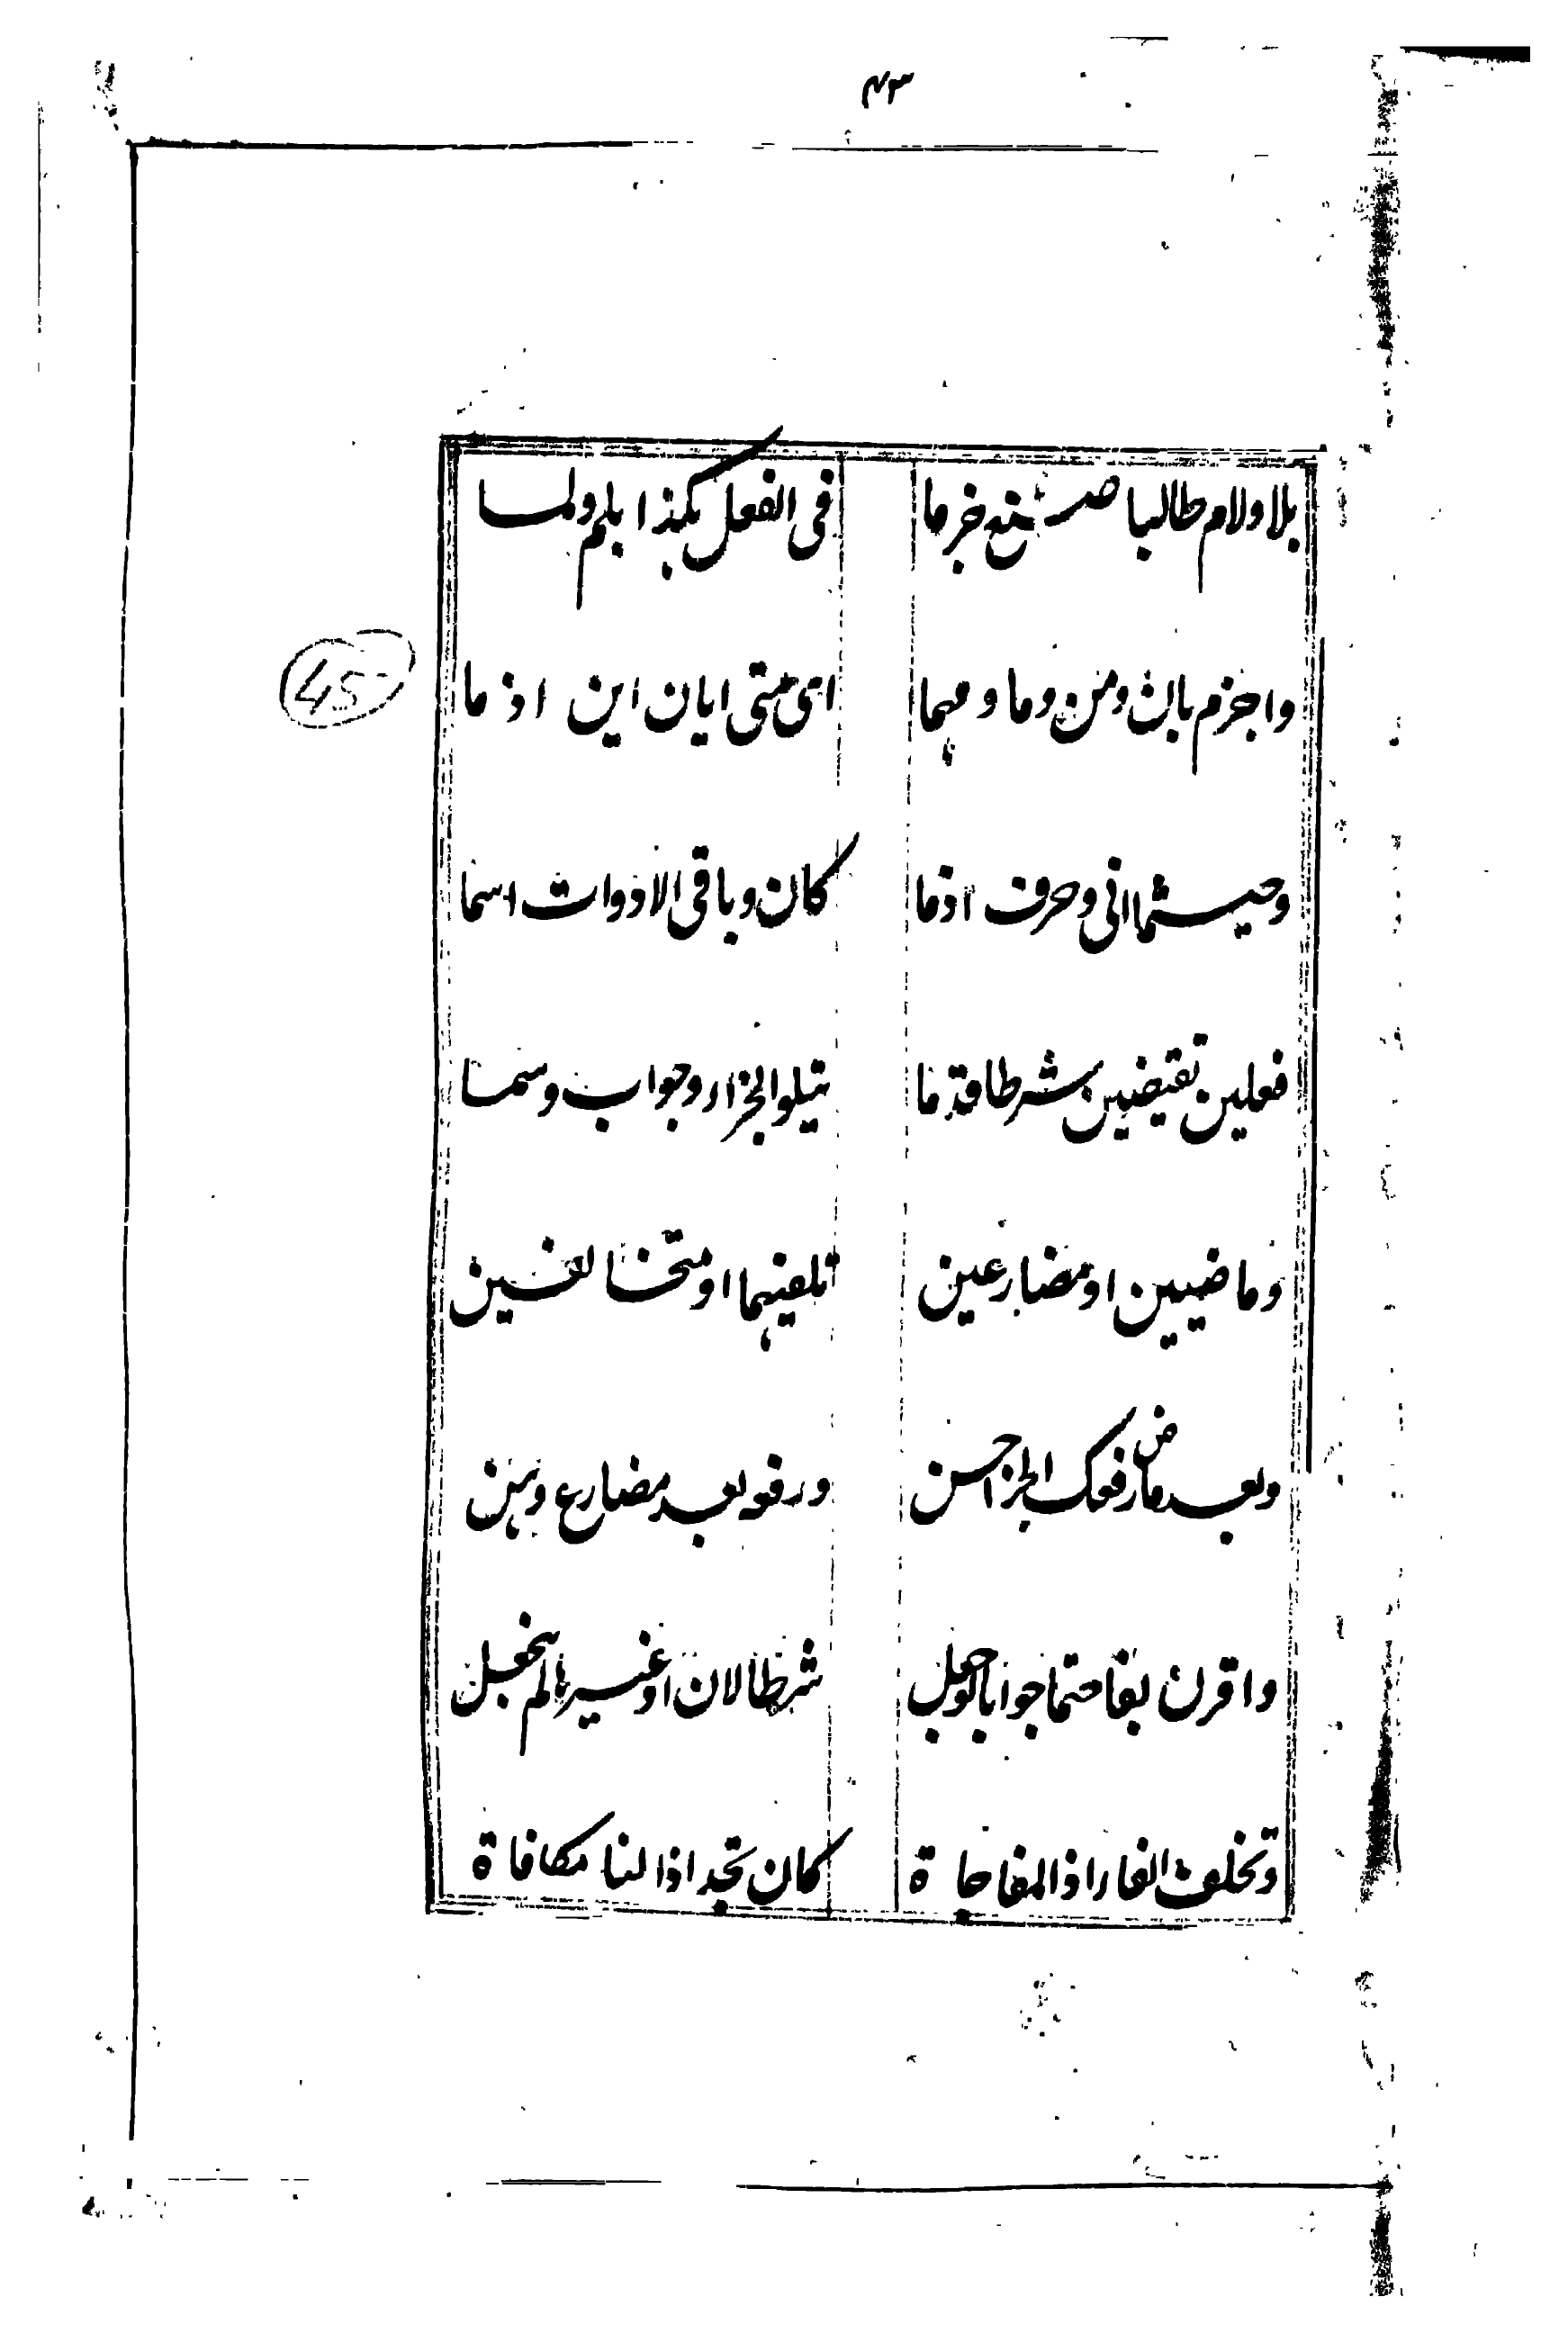 ٤٣
بلا ولام طالبا ضع جزما في الفعل هكذا بلم ولما
45
واجزم بان ومن وما ومهما اى متى ايان اين اذ ما
وحيثما انى وحرف اذ ما كان وباقى الادوات اسما
فعلين تقيضين شرط قدما يتلو الجزاء وجواب وسما
وماضيين او مضارعين تلفيهما او متخالفين
وبعد ماض رفعك الجزا حسن ورفعه بعد مضارع وهن
واقرن بفا حتما جوابا لو جعل شرطا لان او غيرها لم ينجعل
وتخلف الفاء اذا المفاجاة كان تجد اذا لنا مكافاة